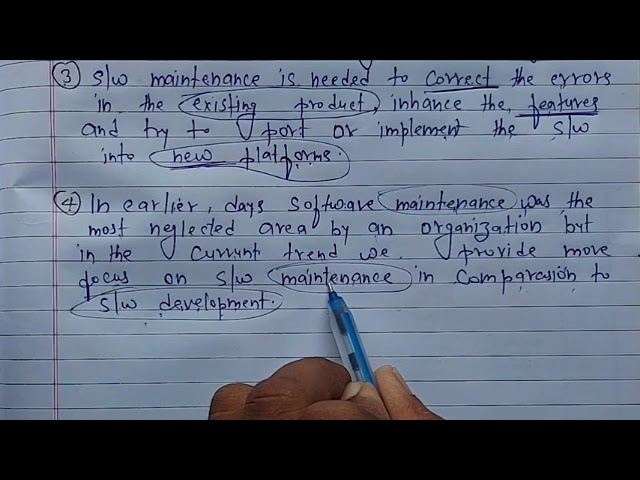 ③ s/w maintenance is needed to correct the errors
in the existing product, inhance the features
and try to port or implement the s/w
into new platforms.
④ In earlier, days software maintenance was the
most neglected area by an organization but
in the current trend we provide more
focus on s/w maintenance in comparasion to
s/w development.